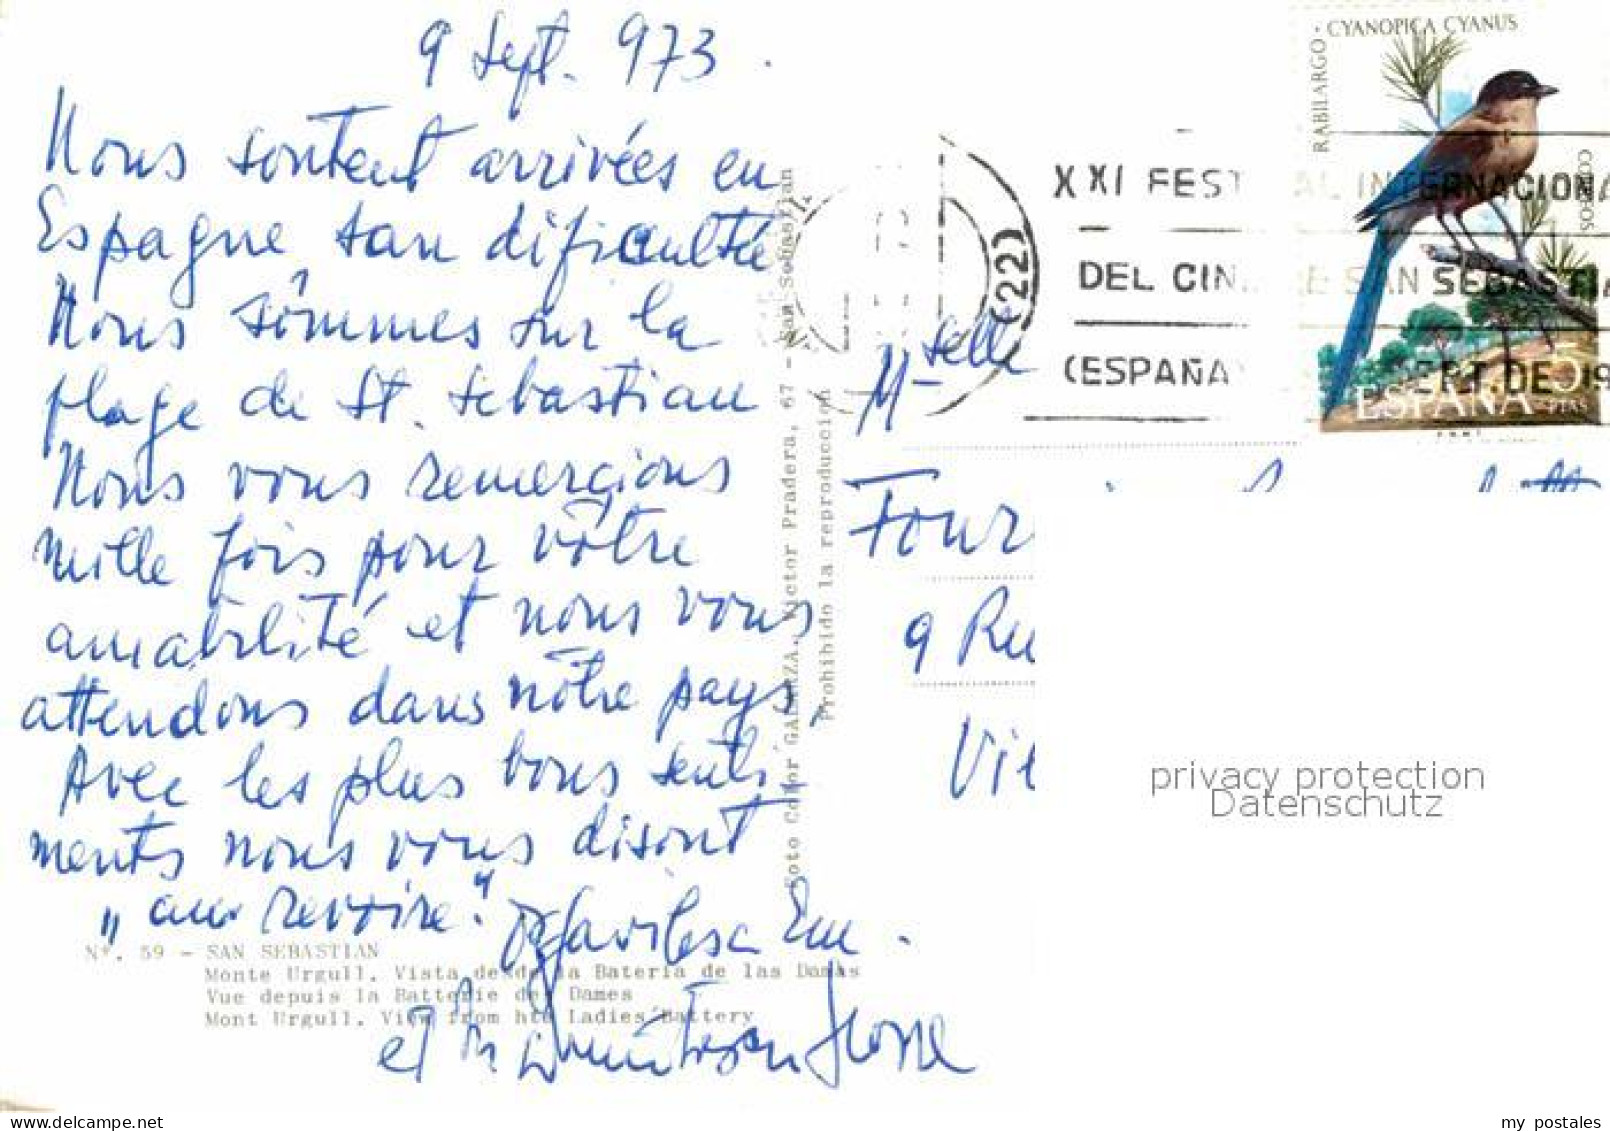 9 Sept. 973.
Nous sontent arrivées en
Espagne san dificulté
Nous sômmes sur la
plage de St. Sebastian
Nous vous remercions
mille fois pour vôtre
amabilité et nous vous
attendons dans nôtre pays,
Avec les plus bons senti-
ments nous vous disont
„aux revoire."
et
Nº. 59 - SAN SEBASTIAN
Monte Urgull. Vista desde la Bateria de las Damas
Vue depuis la Batterie des Dames
Mont Urgull. View from hte Ladies Battery
Foto Color GALARZA. Victor Pradera, 67 - San Sebastian
Prohibido la reproduccion
(22)
XXI FESTIVAL INTERNACIONA
DEL CINE DE SAN SEBASTIA
(ESPAÑA) SEPT. DE 19
RABILARGO · CYANOPICA CYANUS
CORREOS
ESPAÑA 5
PTAS
Mselle
Four
9 Ru
Vi
privacy protection
Datenschutz
my postales